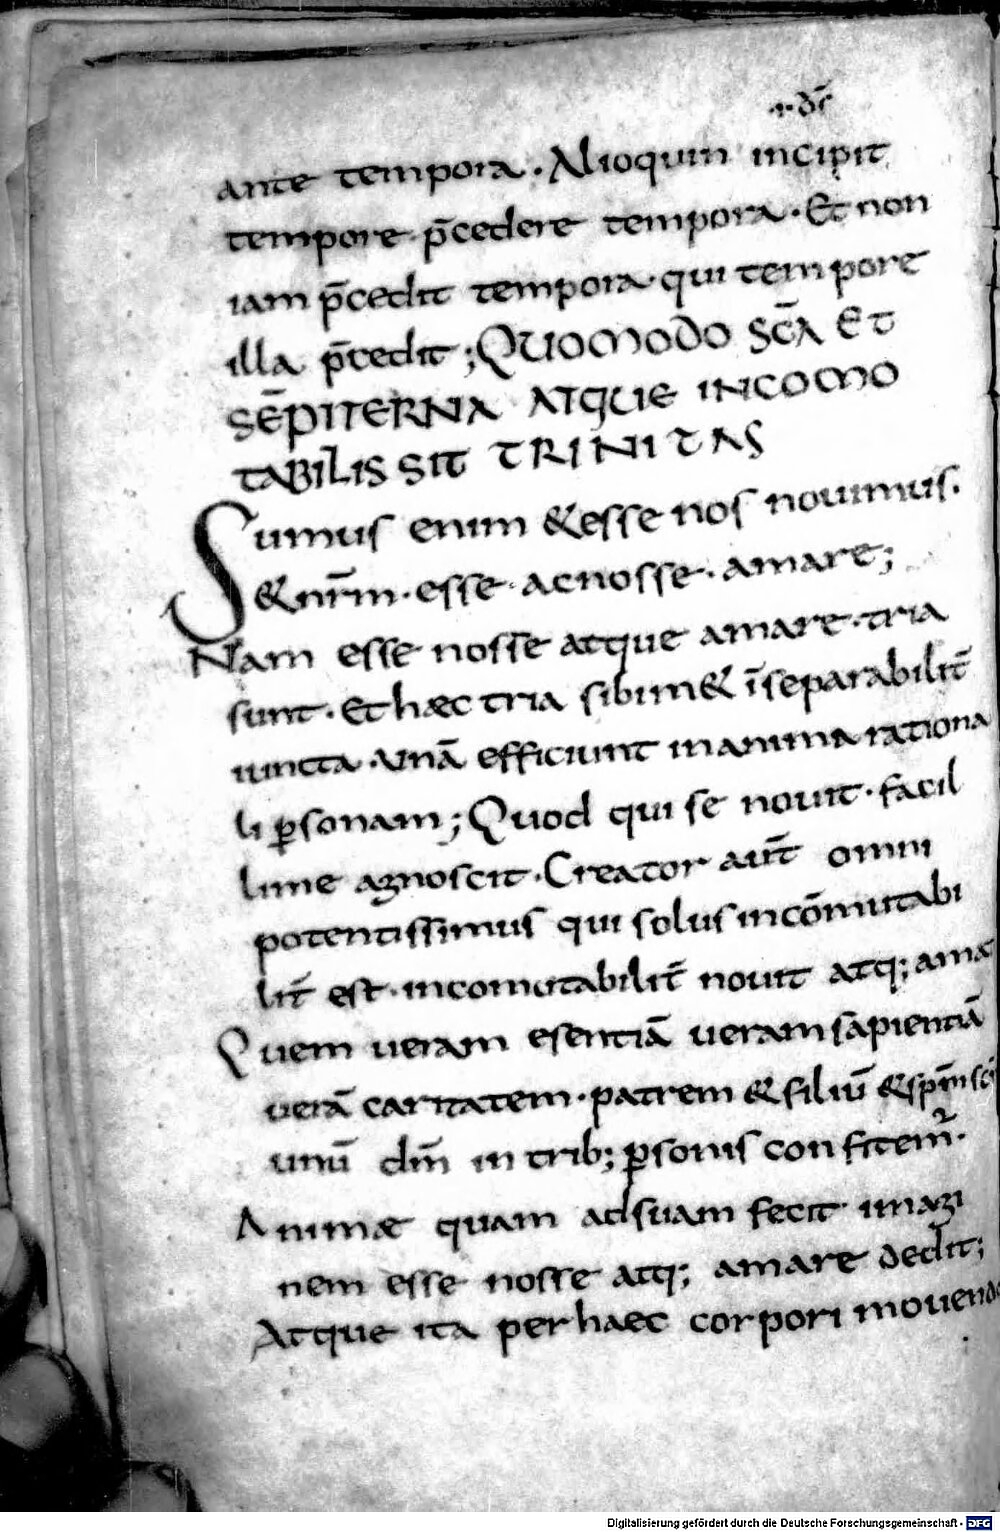 ·i· d̄s
ante tempora. Alioquin incipit
tempore p̄cedere tempora. Et non
iam p̄cedit tempora. qui tempore
illa p̄cedit; QUOMODO SC̄A ET
SĒPITERNA ATQUE INCOMO
TABILIS SIT TRINITAS
Sumus enim & esse nos nouimus.
& nr̄m. esse. ac nosse. amare;
Nam esse nosse atque amare. tria
sunt. Et haec tria sibim& īseparabilit̄
iuncta. unā efficiunt in anima rationa
li p̄sonam; Quod qui se nouit. facil
lime agnoscit. Creator aut̄ omni
potentissimus qui solus incōmutabi
lit̄ est. incomutabilit̄ nouit atq; ama
Quem ueram esentiā ueram sapientiā
uerā caritatem. patrem & filiū & sp̄m sc̄
unū dm̄ in trib; p̄sonis confitem̄.
Animae quam ad suam fecit imagi
nem esse nosse atq; amare dedit;
Atque ita per haec corpori mouendo
Digitalisierung gefördert durch die Deutsche Forschungsgemeinschaft - DFG